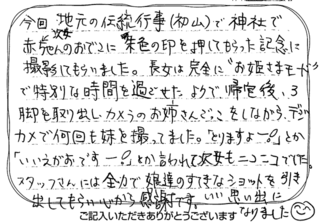 今回 地元の伝統行事(初山)で神社で
次女
赤ちゃんのおでこに朱色の印を押してもらった記念に
撮影してもらいました。長女は完全に"お姫さまモード"
で特別な時間を過ごせたようで、帰宅後、3
脚を取り出しカメラのお姉さんごっこをしながら、デジ
カメで何回も妹を撮ってました。"とりますよー!"とか
"いいえがおですー!"とか言われて次女もニコニコでした。
スタッフさんには全力で娘達のすてきなショットを引き
出してもらい心から感謝です。いい思い出に
なりました。
ご記入いただきありがとうございます